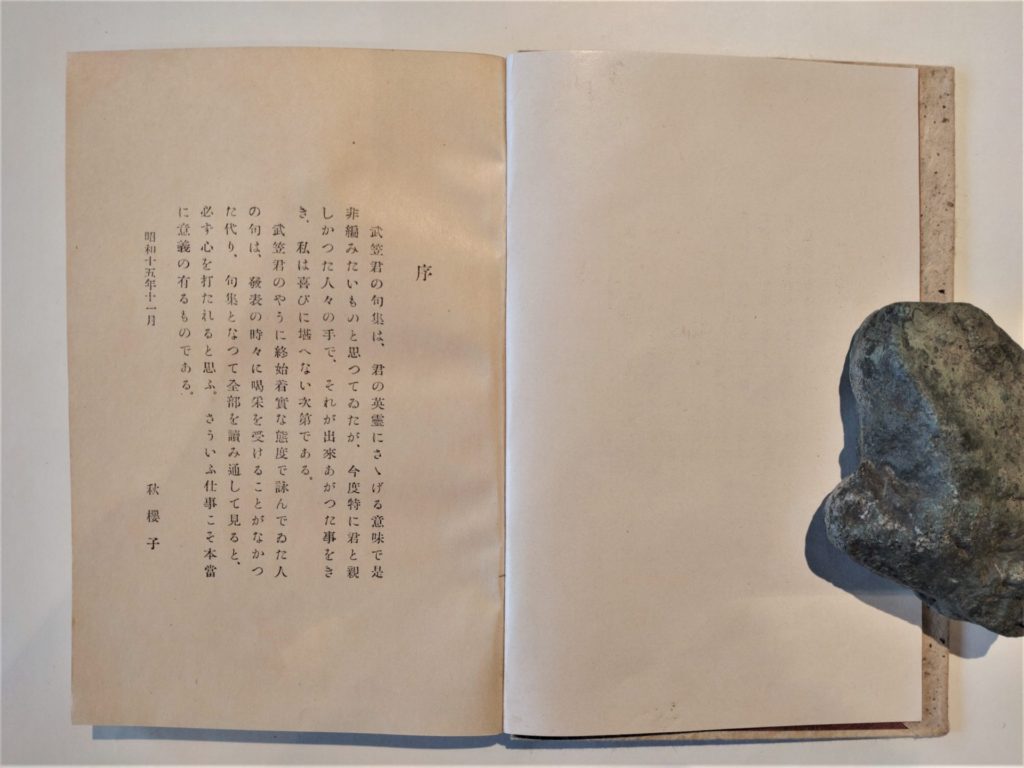 序
武笠君の句集は、君の英靈にさゝげる意味で是
非編みたいものと思つてゐたが、今度特に君と親
しかつた人々の手で、それが出來あがつた事をき
き、私は喜びに堪へない次第である。
武笠君のやうに終始着實な態度で詠んでゐた人
の句は、發表の時々に喝采を受けることがなかつ
た代り、句集となつて全部を讀み通して見ると、
必ず心を打たれると思ふ。さういふ仕事こそ本當
に意義の有るものである。
昭和十五年十一月
秋櫻子